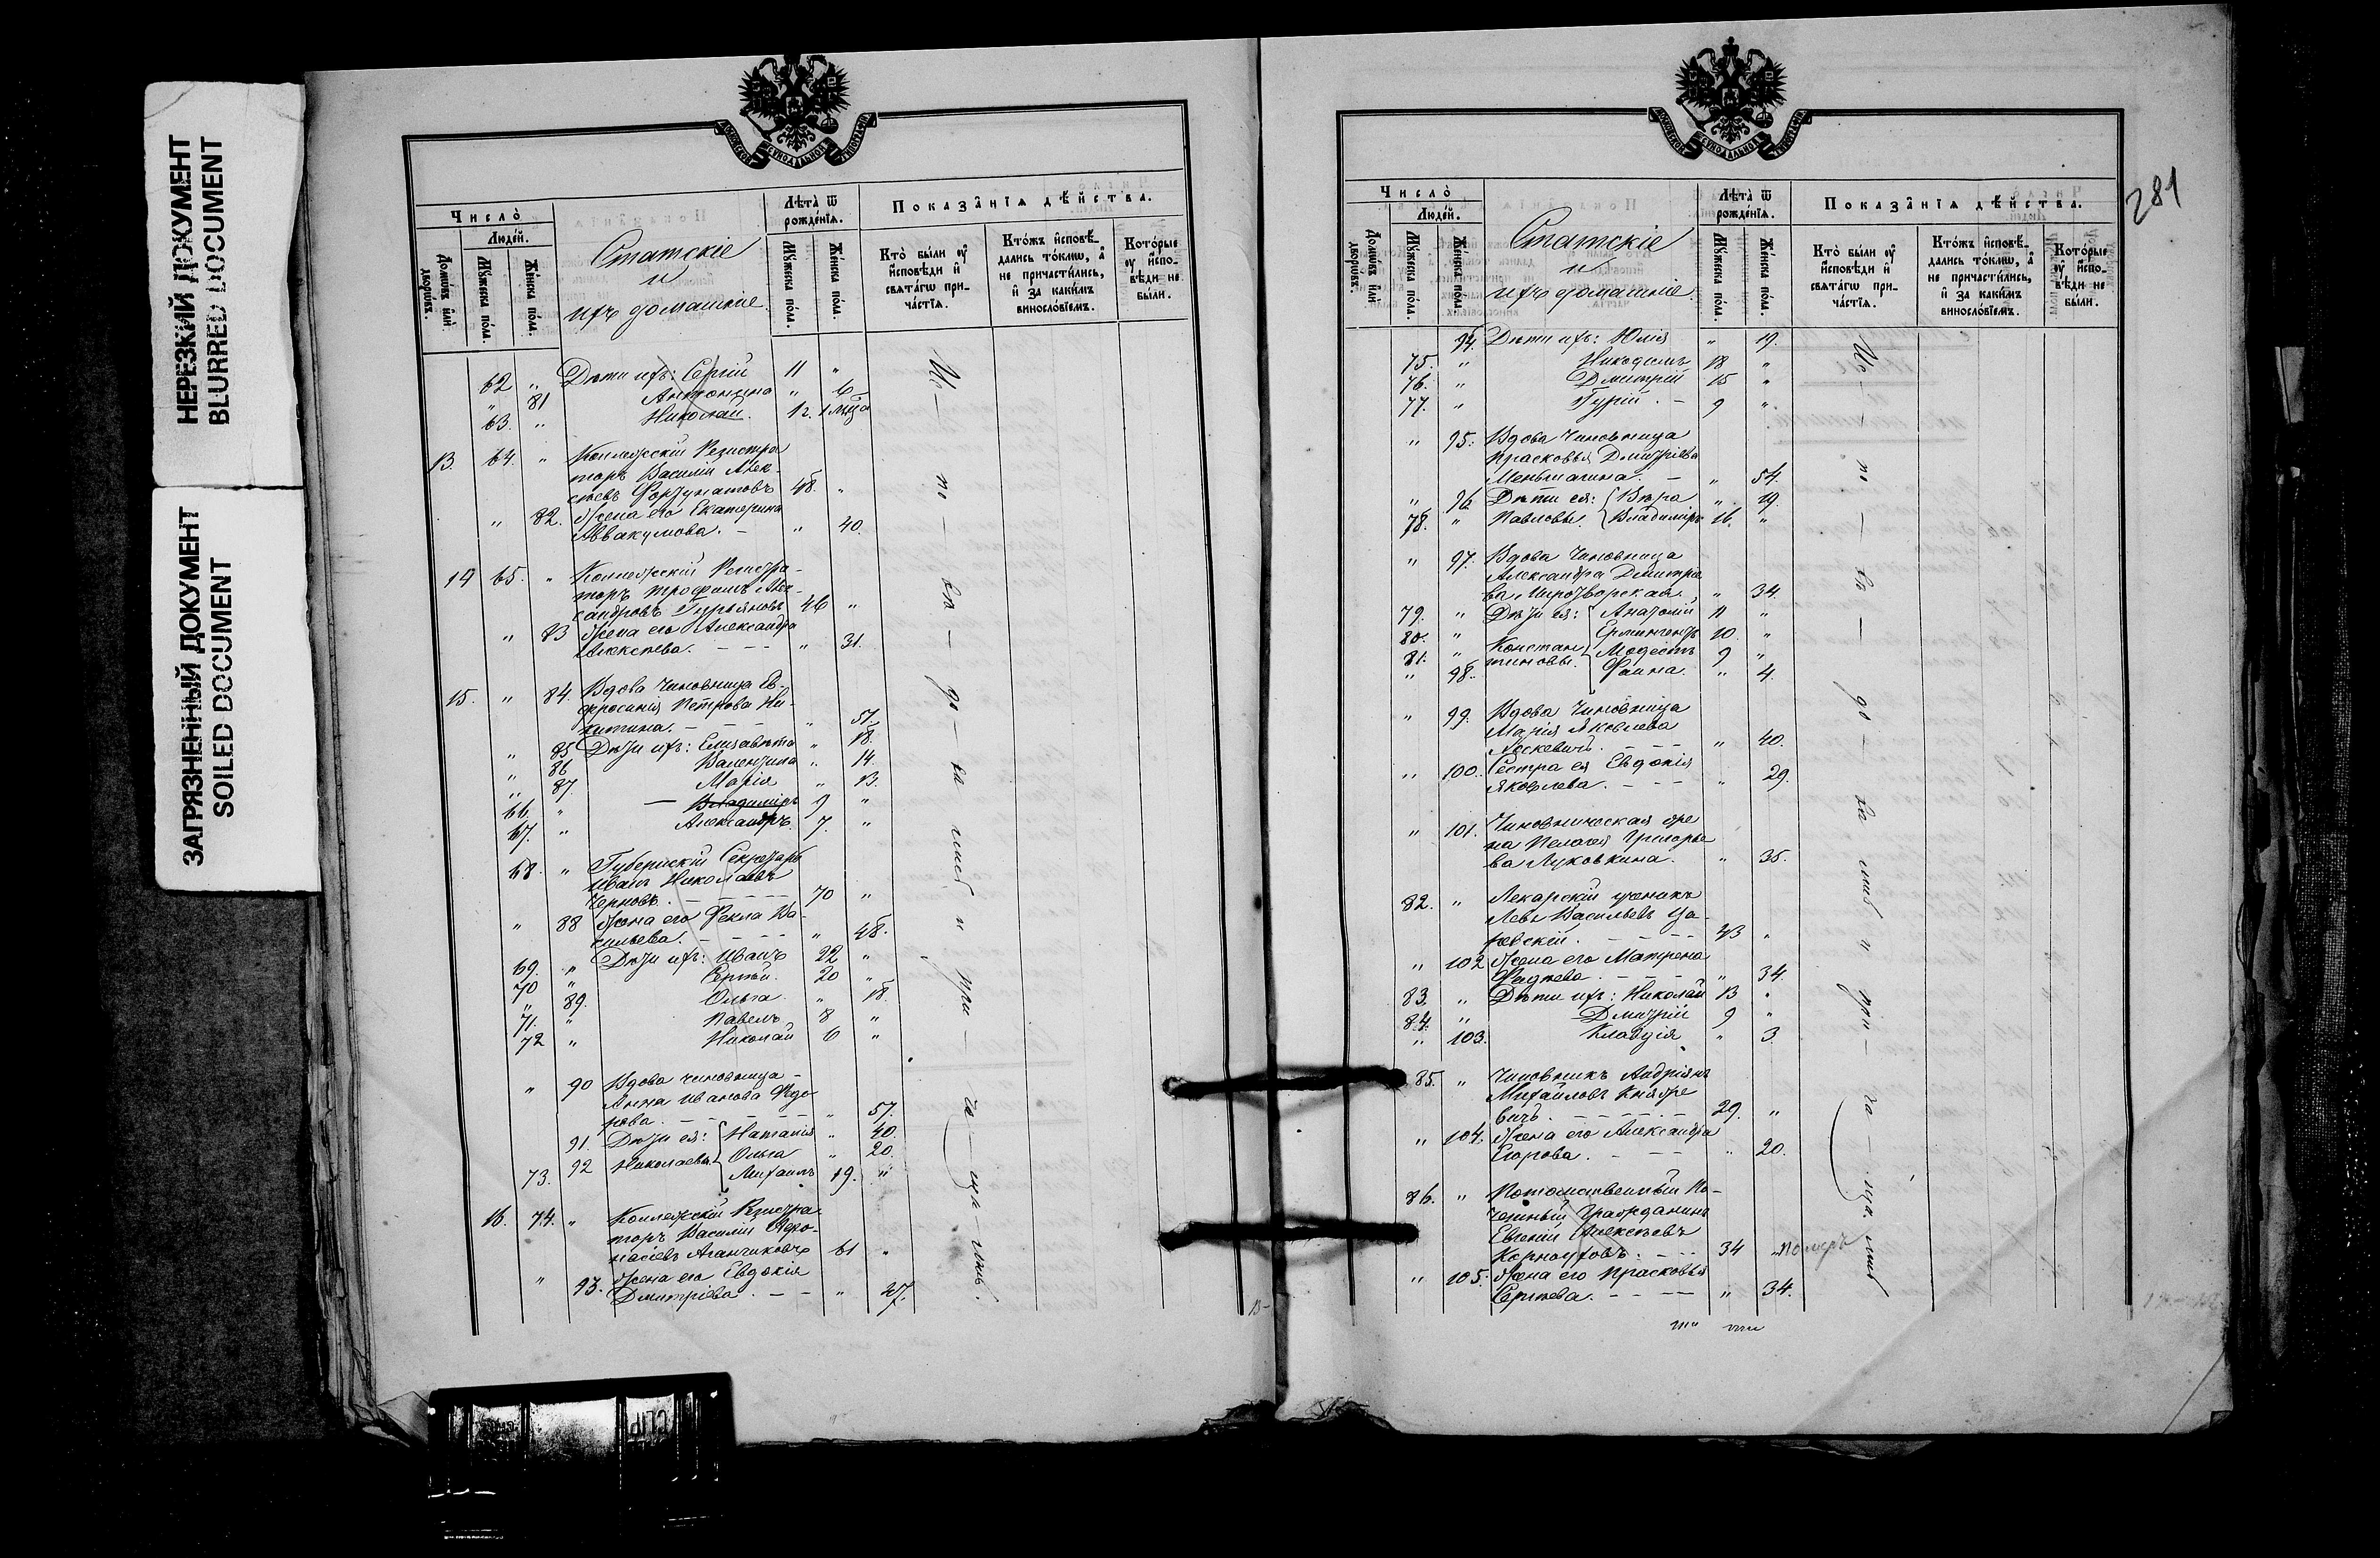 НЕРЕЗКИЙ ДОКУМЕНТ
BLURRED DOCUMENT
ЗАГРЯЗНЕННЫЙ ДОКУМЕНТ
SOILED DOCUMENT
МОСКОВСКОЙ СѴНОДАЛЬНОЙ ТИПОГРАФІИ
Число̀
Люде́й.
Домѡ́въ и҆лѝ дворѡ́въ.
Мꙋ́жеска по́ла.
Же́нска по́ла.
Статскіе
и
ихъ домашніе.
Лѣта̀ ѿ рожде́нїѧ.
Мꙋ́жеска по́ла.
Же́нска по́ла.
Показа̑нїѧ дѣ́йства.
Кто̀ бы́ли оу҆ и҆сповѣди и҆ свѧта́гѡ причастїѧ.
Кто́жъ и҆сповѣдались то́кмѡ, а҆ не причасти́лись, и҆ за каки́мъ винословїемъ.
Кото́рые оу҆ и҆сповѣди не бы́ли.
62 " Дѣти ихъ: Сергій 11 "
" 81 Антонина " 6
63. " Николай. 1 г. 1 мца
13. 64. " Коллежскій Регистра
торъ Василій Алек-
сѣевъ Фортунатовъ 48. "
" 82. Жена его Екатерина
Аввакумова. - " 40.
14 65. " Коллежскій Регистра-
торъ Трофимъ Алек-
сандровъ Гурьяновъ 46 "
" 83 Жена его Александра
Алексѣева. - - - " 31.
15. " 84. Вдова Чиновница Ев-
фросинія Петрова Ни-
китина. - - - " 51.
" 85 Дѣти ихъ: Елизавета " 18
" 86 Валентина " 14.
" 87. Марія " 13.
66. " Владиміръ 9 "
67. " Александръ. 7. "
68. " Губернскій Секретарь
Иванъ Николаевъ
Черновъ. - - - 70 "
" 88 Жена его Фекла Ва-
сильева. - - - " 48.
69. " Дѣти ихъ: Иванъ 22 "
70 " Сергѣй. 20 "
" 89. Ольга. " 18.
71. " Павелъ 8 "
72 " Николай 6 "
" 90 Вдова чиновница -
Анна Иванова Федо-
рова. - - - " 57.
91. Дѣти ея: Наталія " 40.
92 Николаевы Ольга " 20.
73. Михаилъ 19. "
16. 74. " Коллежскій Регистра-
торъ Василій Афо-
насіевъ 61 "
" 93. Жена его Евдокія
Дмитріева. - - " 47.
Ис - по - вѣ - да - ли - сь и при - ча - ща - лись.
МОСКОВСКОЙ СѴНОДАЛЬНОЙ ТИПОГРАФІИ
281
Число̀
Люде́й.
Домѡ́въ и҆лѝ дворѡ́въ.
Мꙋ́жеска по́ла.
Же́нска по́ла.
Статскіе
и
ихъ домашніе.
Лѣта̀ ѿ рожде́нїѧ.
Мꙋ́жеска по́ла.
Же́нска по́ла.
Показа̑нїѧ дѣ́йства.
Кто̀ бы́ли оу҆ и҆сповѣди и҆ свѧта́гѡ причастїѧ.
Кто́жъ и҆сповѣдались то́кмѡ, а҆ не причасти́лись, и҆ за каки́мъ винословїемъ.
Кото́рые оу҆ и҆сповѣди не бы́ли.
94. Дѣти ихъ: Юлія " 19.
75. " Никодимъ 18 "
76. " Дмитрій 15 "
77. " Гурій. - 9 "
" 95. Вдова Чиновница
Прасковья Дмитріева
Меньшагина. - " 54.
" 96. Дѣти ея: Вѣра " 19.
78. " Павловы. Владиміръ 16. "
" 97. Вдова Чиновница
Александра Дмитріе
ва Миротворская " 34.
79. " Дѣти ея: Анатолій 11 "
80. " Констан Ерминингельдъ 10. "
81. " тиновы. Модестъ 9 "
" 98. Фаина. " 4.
" 99. Вдова Чиновница
Марія Яковлева
- - - " 40.
" 100. Сестра ея Евдокія
Яковлева. - - - " 29.
" 101. Чиновническая же
на Пелагея Григорье
ва Луковкина. " 35.
82. " Лекарскій ученикъ
Левъ Васильевъ Ца-
ревскій. - - - 43 "
" 102 Жена его Матрена
Фадѣева. - - - " 34
83. " Дѣти ихъ: Николай 13 "
84. " Дмитрій 9 "
" 103. Клавдія " 3.
85. " Чиновникъ Андріянъ
Михайловъ Княже
вичъ. - - - 29. "
" 104. Жена его Александра
Егорова. - - - " 20.
86. " Потомственный По-
четный Гражданинъ
Евгеній Алексѣевъ
Карнауховъ. - - - 34 " Померъ
" 105. Жена его Прасковья
Сергѣева. - - - " 34.
Ис - по - вѣ - да - ли - сь и при - ча - ща - лись